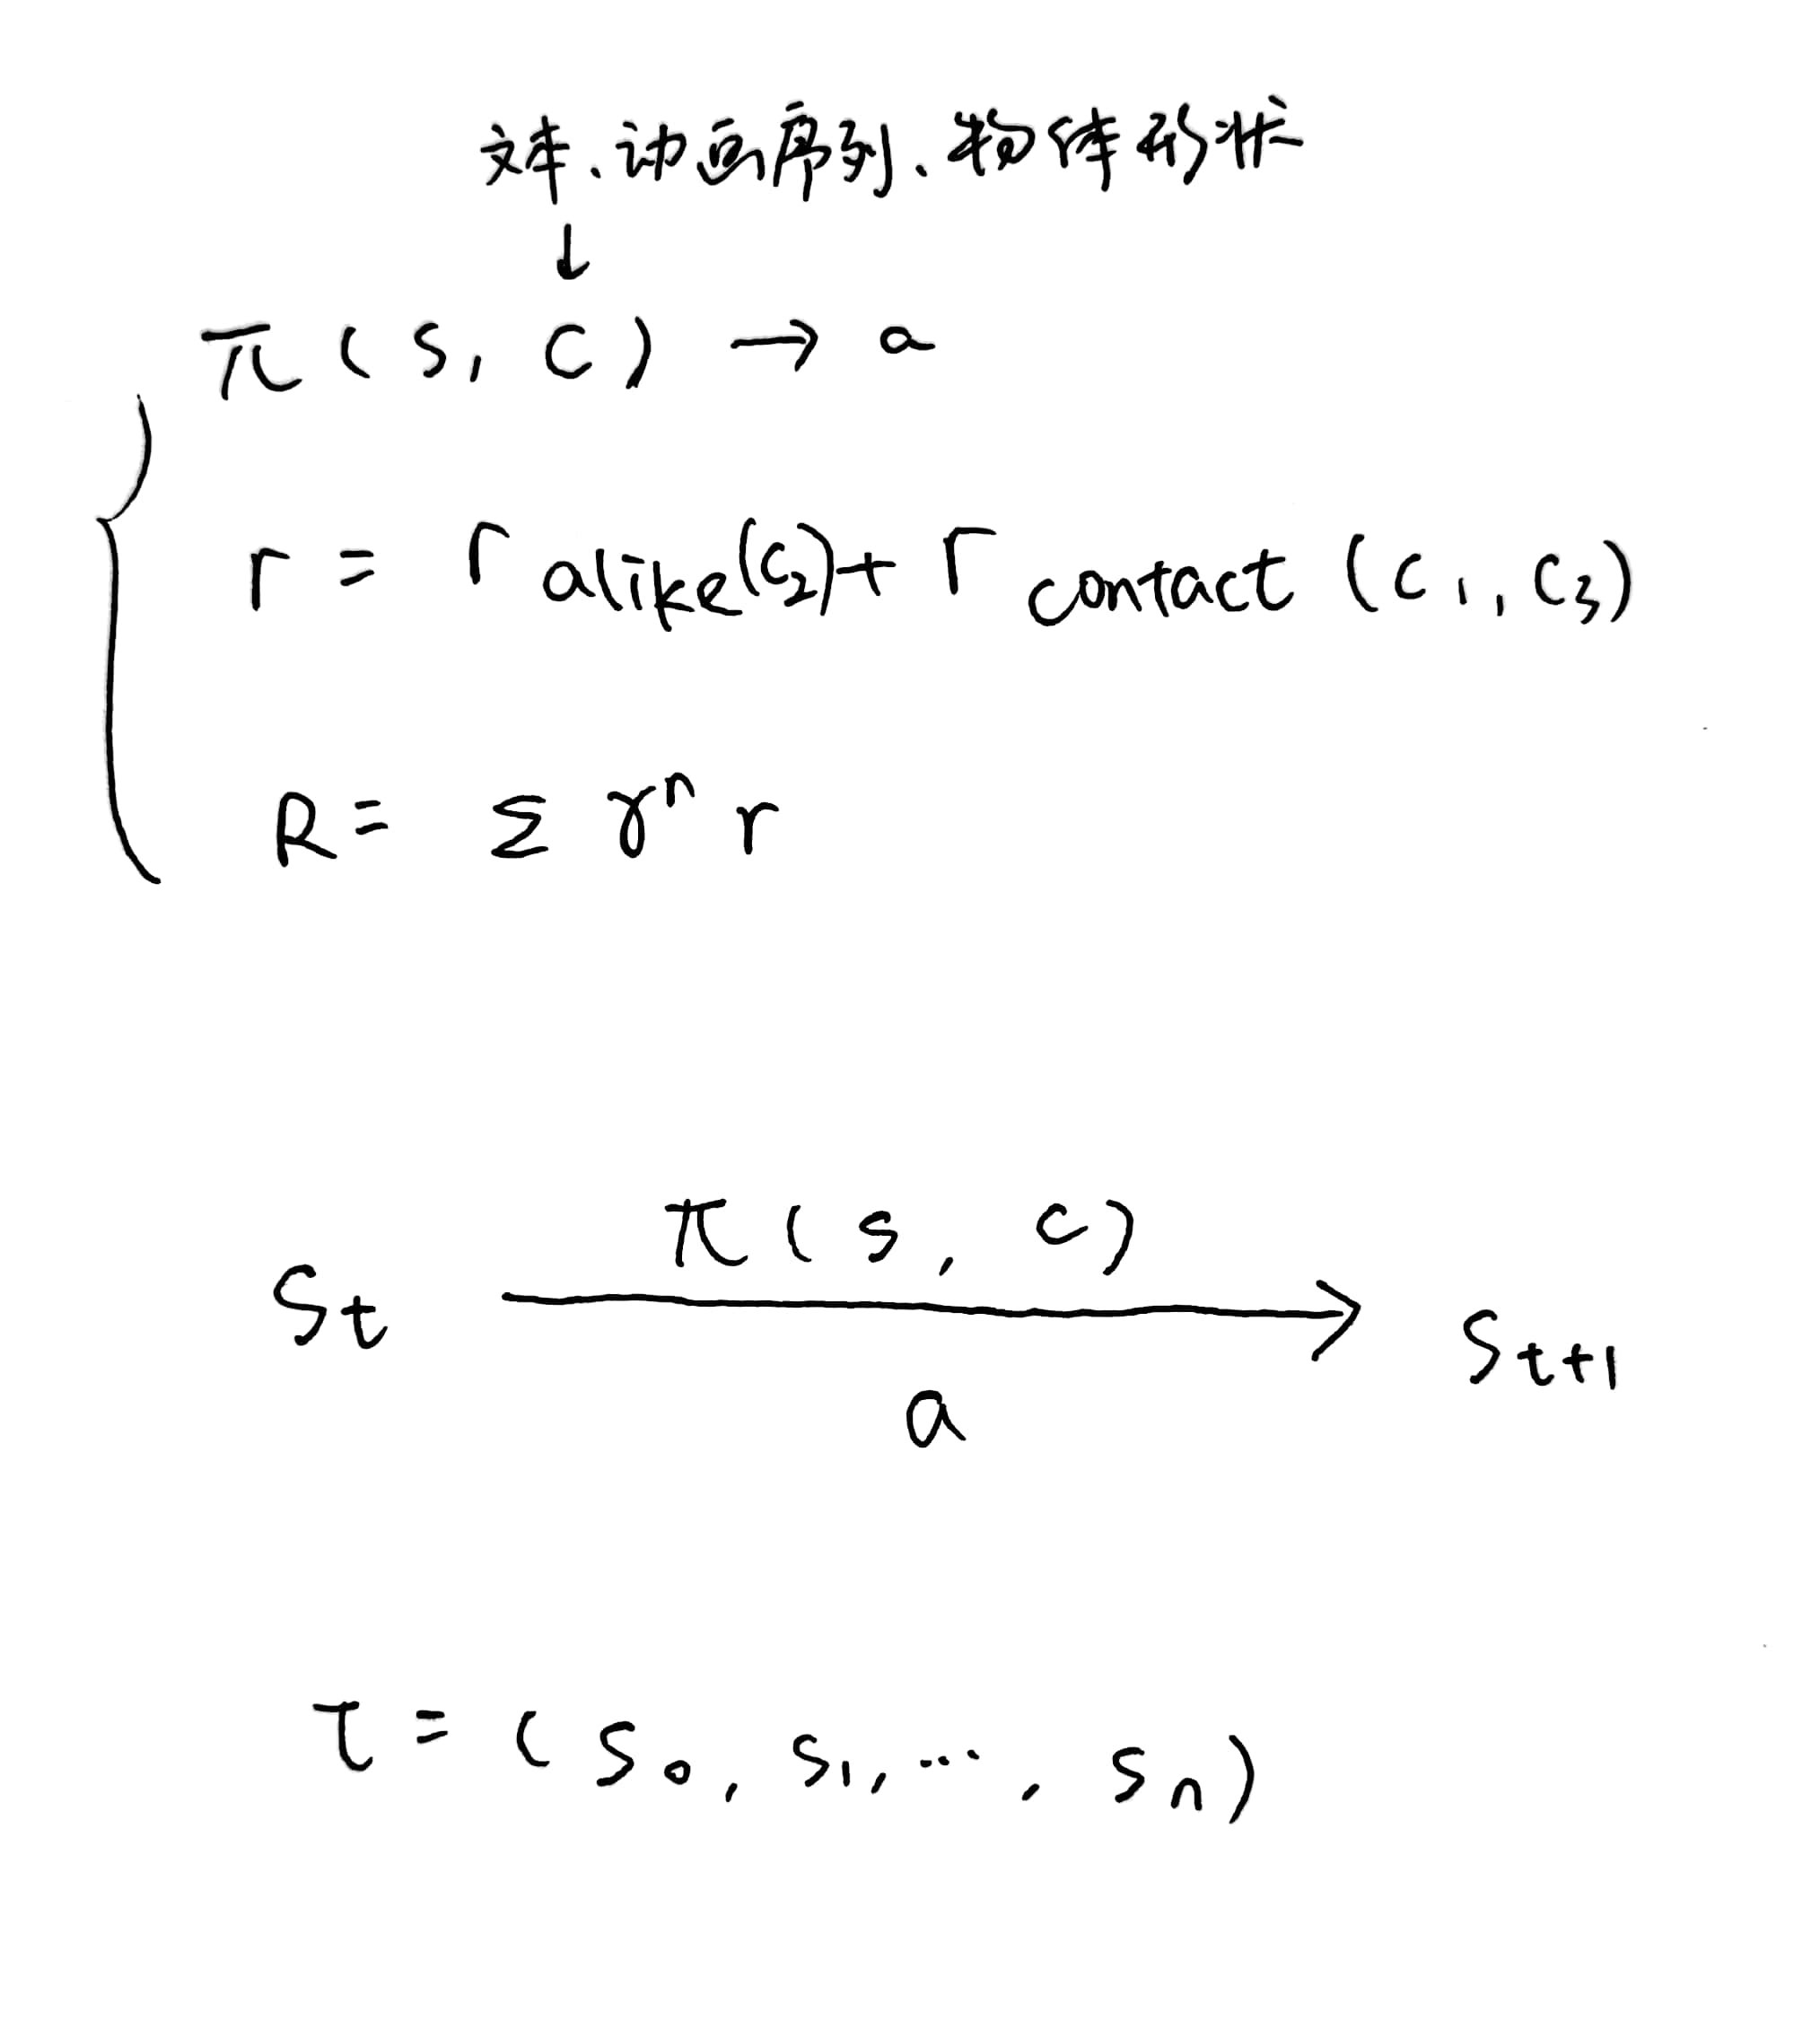 文本、动画序列、物体形状
↓
π(s, c) → a
r = r alike(c₂) + r contact (c₁, c₃)
R = Σ γⁿ r
π(s, c)
Sₜ → Sₜ₊₁
a
τ = (s₀, s₁, ⋯, sₙ)